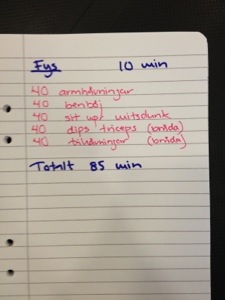 Fys 10 min
40 armhävningar
40 benböj
40 sit ups
40 dips triceps (bräda)
40 tåhävningar (bräda)
Totalt 85 min